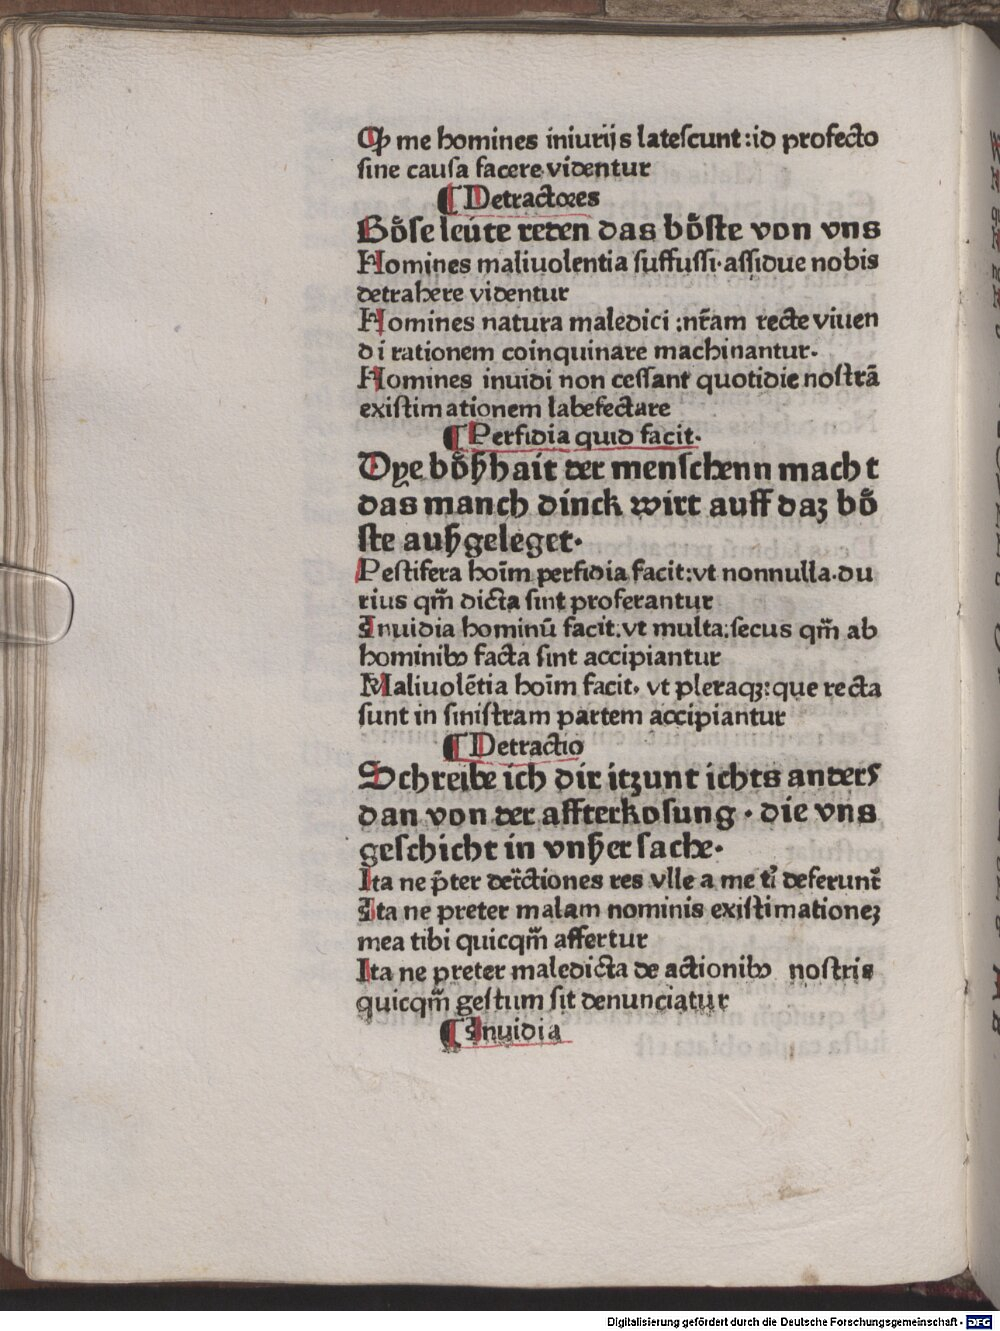 Ꝙ me homines iniurijs lateſcunt:id profecto
ſine cauſa facere videntur
¶ Detractores
Bőſe leúte reden das bőſte von vns
Homines maliuolentia ſuffuſſi·aſſidue nobis
detrahere videntur
Homines natura maledici :nr̄am recte viuen
di rationem coinquinare machinantur.
Homines inuidi non ceſſant quotidie noſtrā
exiſtimationem labefectare
¶ Perfidia quid facit.
Dye bőſzhait der menſchenn macht
das manch dinck wirt auff daz bő
ſte auſzgeleget.
Peſtifera hoīm perfidia facit:vt nonnulla.du
rius qm̄ dicta ſint proferantur
Inuidia hominū facit:vt multa:ſecus qm̄ ab
hominibꝰ facta ſint accipiantur
Maliuolētia hoīm facit, vt pleraqꝫ:que recta
ſunt in ſiniſtram partem accipiantur
¶ Detractio
Schreibe ich dir itzunt ichts anders
dan von der affterkoſung · die vns
geſchicht in vnſzer ſache.
Ita ne p̄ter det̄ctiones res vlle a me ti deferunt̄
Ita ne preter malam nominis exiſtimationeꝫ
mea tibi quicqm̄ affertur
Ita ne preter maledicta de actionibꝰ noſtris
quicqm̄ geſtum ſit denunciatur
¶ Inuidia
Digitalisierung gefördert durch die Deutsche Forschungsgemeinschaft - DFG